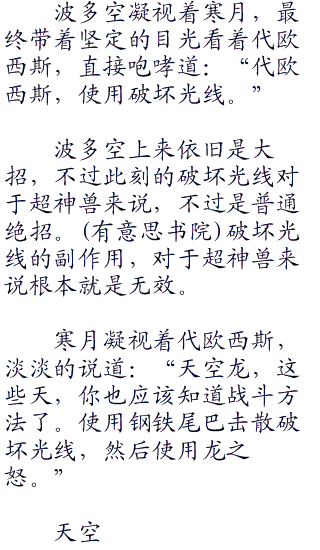 波多空凝视着寒月，最
终带着坚定的目光看着代欧
西斯，直接咆哮道：“代欧
西斯，使用破坏光线。”
波多空上来依旧是大
招，不过此刻的破坏光线对
于超神兽来说，不过是普通
绝招。(有意思书院)破坏光
线的副作用，对于超神兽来
说根本就是无效。
寒月凝视着代欧西斯，
淡淡的说道：“天空龙，这
些天，你也应该知道战斗方
法了。使用钢铁尾巴击散破
坏光线，然后使用龙之
怒。”
天空